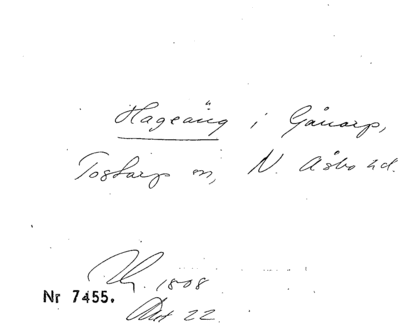 Hageäng i Gånarp,
Tostarp sn, N. Åsbo hd.
1808
Nr 7455.
Akt 22